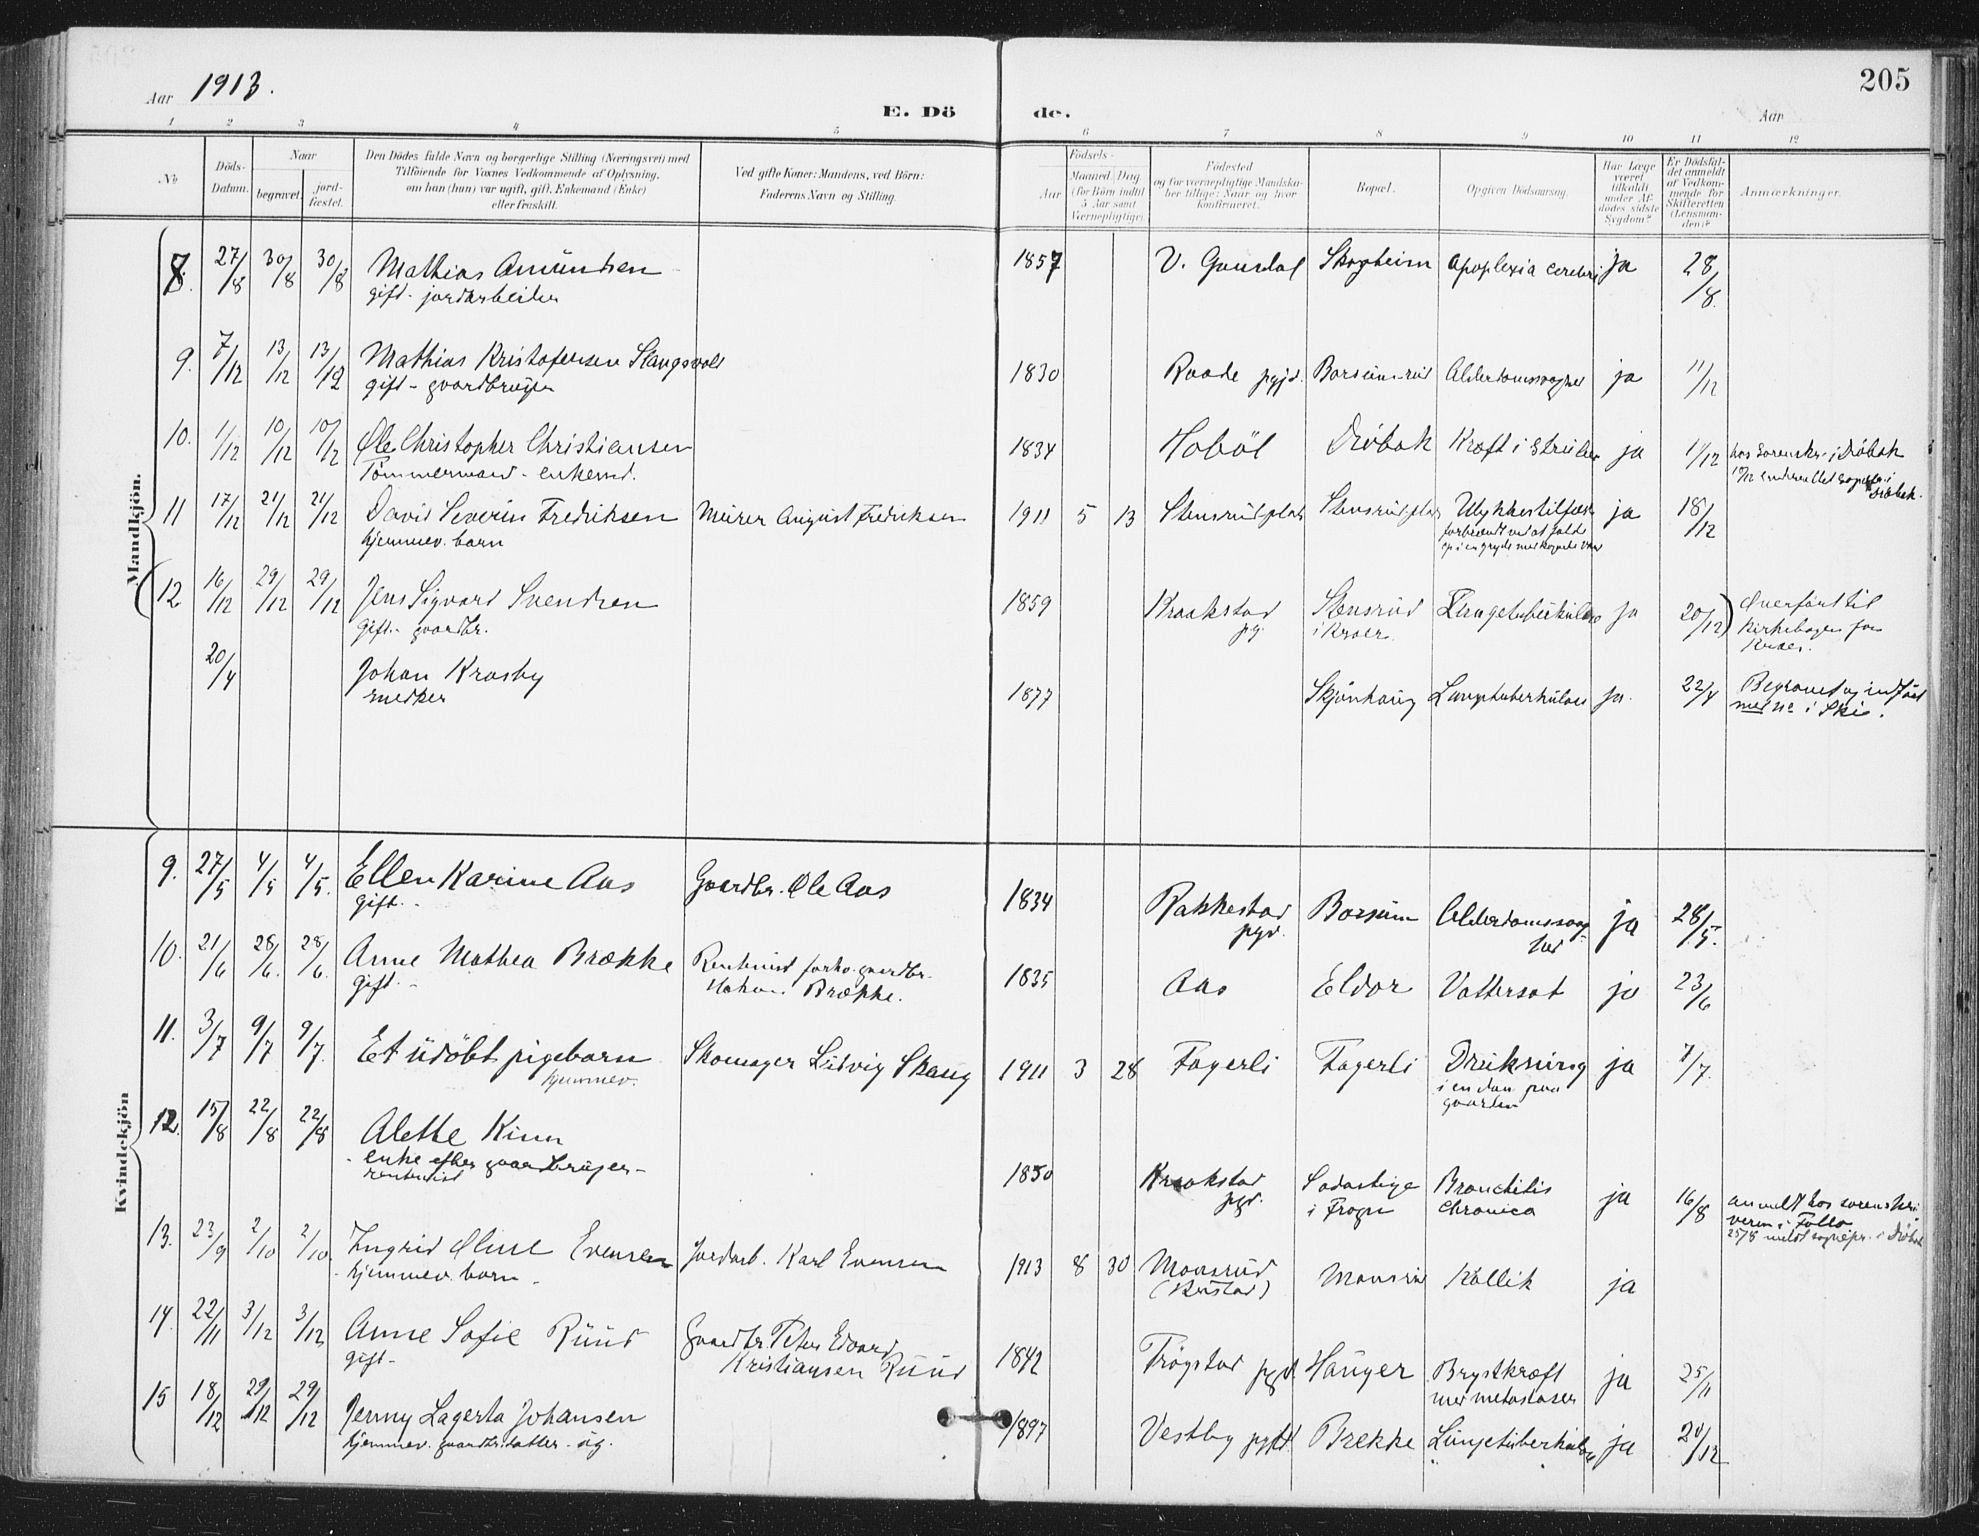 205
Aar 1913.
E. Dö de.
Aar
1 2 3 4 5 6 7 8 9 10 11 12
No
Döds-Datum.
Naar
begravet.
jord-fæstet.
Den Dödes fulde Navn og borgerlige Stilling (Næringsvei) med
Tilföiende for Voxnes Vedkommende af Oplysning,
om han (hun) var ugift, gift, Enkemand (Enke)
eller fraskilt.
Ved gifte Koner: Mandens, ved Börn:
Faderens Navn og Stilling.
Födsels-
Aar
Maaned Dag
(for Börn indtil
5 Aar samt
Værnepligtige).
Födested
og for værnepligtige Mandska-
ber tillige: Naar og hvor
konfirmeret.
Bopæl.
Opgiven Dödsaarsag.
Har Læge
været
tilkaldt
under Af-
dödes sidste
Sygdom?
Er Dödsfal-
det anmeldt
af Vedkom-
mende for
Skifteretten
(Lensman-
den)?
Anmærkninger.
Mandkjön.
8. 27/8 30/8 30/8 Mathias Amundsen 1857 V. Gausdal Skogheim Apoplexia cerebri ja 28/8
gift - jordarbeider
9. 7/12 13/12 13/12 Mathias Kristofersen Slangsvold 1830 Raade pgjd. Borsum-rud Alderdomssvaghed ja 11/12
gift - gaardbruger
10. 1/12 10/12 10/12 Ole Christopher Christiansen 1834 Haböl Dröbak Kræft i Struben ja 1/12 hos sorenskr. i Dröbak
Tömmermand - enkemd.
Dröbak.
11 17/12 21/12 21/12 David Severin Fredriksen Murer August Fredriksen 1911 5 13 Stensrudplads Stensrudplads Ulykkestilfælde ja 18/12
hjemmev. barn
forbrændt ved at falde
op i en gryde med kogende vand
12 16/12 29/12 29/12 Jens Sigvard Svendsen 1859 Kraakstad pg. Stensrud i Kroer. Lungetuberkulose ja 20/12 Overfört til
gift - gaardbr.
kirkebogen for
Kroer.
20/4 Johan Krosby 1877 Skjönhaug Lungetuberkulose ja. 22/4 Begravet og indfört
snedker
med no i Ski.
Kvindekjön
9. 27/5 4/5 4/5. Ellen Karine Aas Gaardbr. Ole Aas 1834 Rakkestad pgd. Borsum Alderdomssvaghed ja 28/5.
gift.
10. 21/6 28/6. 28/6. Anne Mathea Brække Rentenist forho. gaardbr. 1835 Aas Eldor Vattersot ja 23/6
gift. Hakon Brække.
11. 3/7 9/7 9/7. Et udöbt pigebarn Skomager Ludvig Skaug 1911 3 28 Fagerli Fagerli Drukning ja 7/7.
hjemmev.
i en dam paa
gaarden
12. 15/8 22/8 22/8 Alette Kinn 1850 Kraakstad pgd. i Frogn Bronchitis chronica ja 16/8 anmeldt hos sorenskri
enke efter gaardbruger-
rentenist
veren i Follo
25/8 meldt sognepr. i Dröbak
13. 23/9 2/10 2/10. Ingrid Oline Evensen Jordarb. Karl Evensen 1913 8 30 Monsrud Monsrud Kollik ja
hjemmev. barn
14. 22/11 3/12 3/12 Anne Sofie Ruud Gaardbr. Peter Edvard 1842 Trögstad pgd. Hauger Brystkræft ja 25/11
gift - Kristiansen Ruud med metastaser
15 18/12 29/12 29/12 Jenny Lagerta Johansen 1897 Vestby pgd. Brekke Lungetuberkulose ja 20/12
hjemmev. gaardbr. datter - ug.